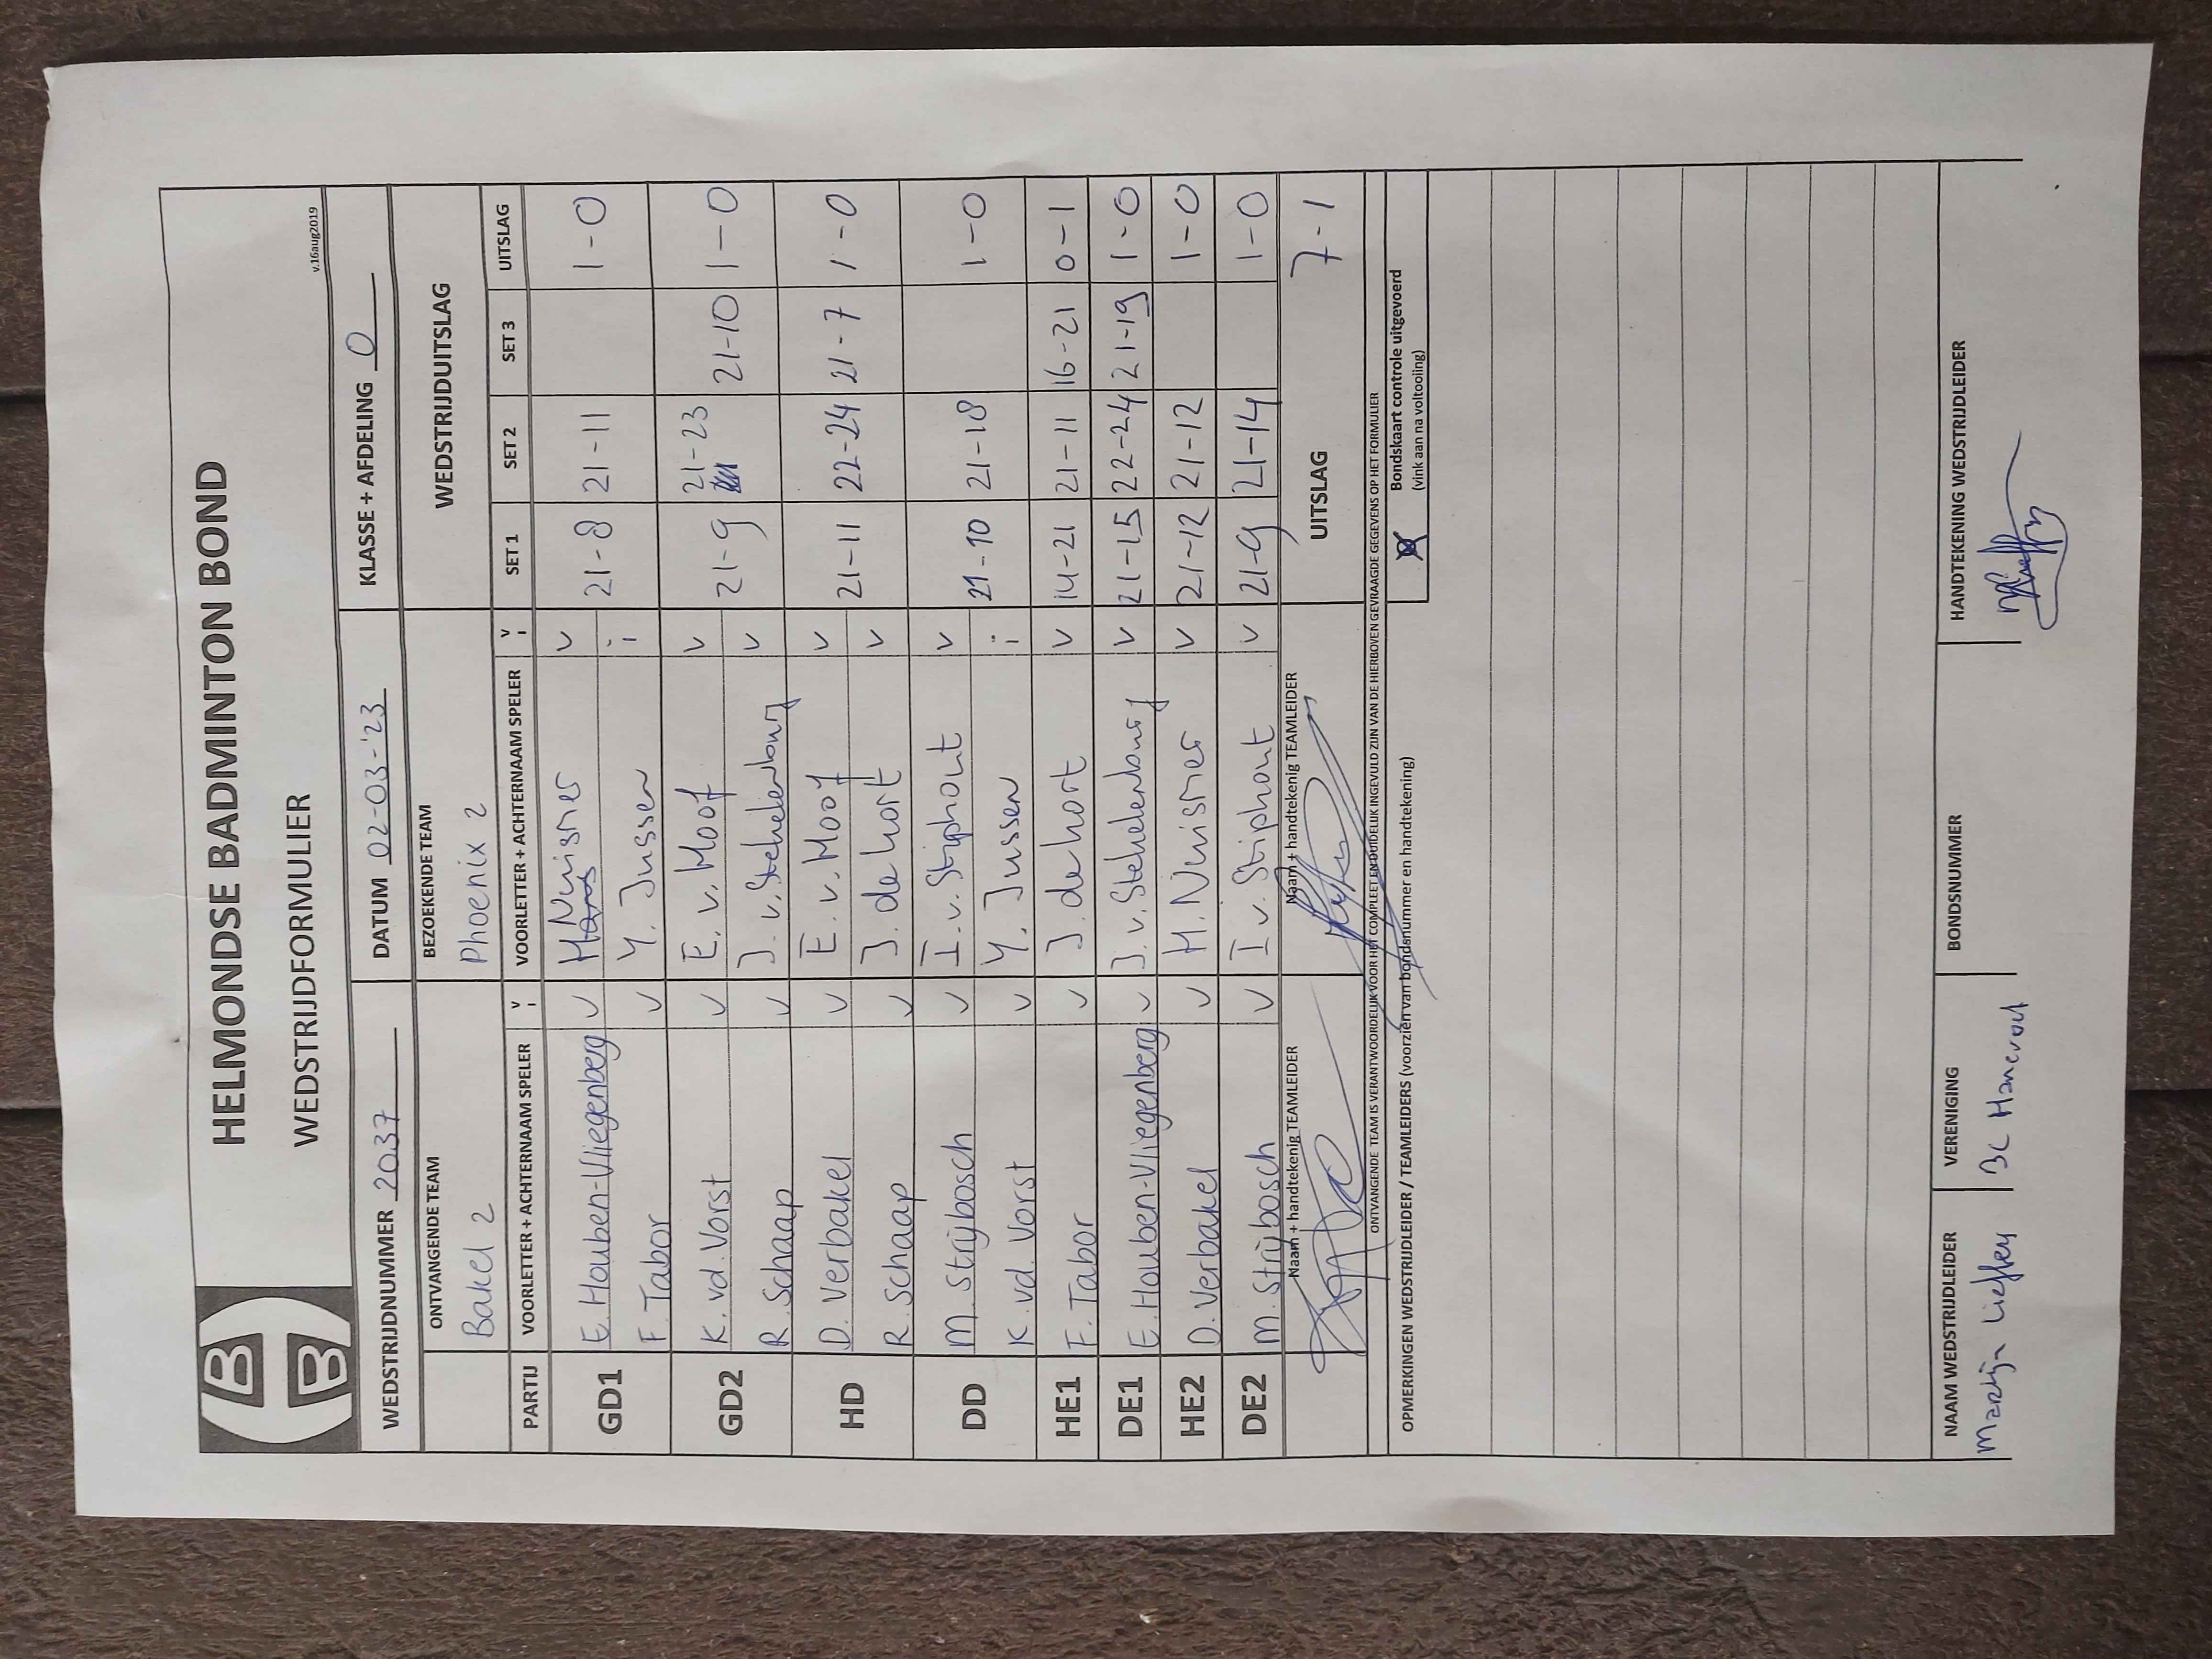 HELMONDSE BADMINTON BOND
WEDSTRIJDFORMULIER
v.16aug2019
WEDSTRIJDNUMMER 2037 DATUM 02-03-'23 KLASSE + AFDELING 0
ONTVANGENDE TEAM BEZOEKENDE TEAM WEDSTRIJDUITSLAG
Bakel 2 Phoenix 2
PARTIJ VOORLETTER + ACHTERNAAM SPELER V i VOORLETTER + ACHTERNAAM SPELER V i SET 1 SET 2 SET 3 UITSLAG
GD1 E. Houben-Vliegenberg v Nuisner v 21-8 21-11 1-0
F. Tabor v Y. Jussen i
GD2 K. vd. Vorst v E. v. Hoof v 21-9 21-23 21-10 1-0
R. Schaap v J. v. Stekelenburg v
HD D. Verbakel v E. v. Hoof v 21-11 22-24 21-7 1-0
R. Schaap v J. de hort v
DD M. Strijbosch v I. v. Stiphout v 21-10 21-18 1-0
K. vd. Vorst v Y. Jussen i
HE1 F. Tabor v J. de hort v 14-21 21-11 16-21 0-1
DE1 E. Houben-Vliegenberg v J. v. Stekelenburg v 21-15 22-24 21-19 1-0
HE2 D. Verbakel v H. Nuisner v 21-12 21-12 1-0
DE2 M. Strijbosch v I v. Stiphout v 21-9 21-14 1-0
Naam + handtekenig TEAMLEIDER Naam + handtekenig TEAMLEIDER UITSLAG 7-1
ONTVANGENDE TEAM IS VERANTWOORDELIJK VOOR HET COMPLEET EN DUIDELIJK INGEVULD ZIJN VAN DE HIERBOVEN GEVRAAGDE GEGEVENS OP HET FORMULIER
OPMERKINGEN WEDSTRIJDLEIDER / TEAMLEIDERS (voorzien van bondsnummer en handtekening)
Bondskaart controle uitgevoerd
(vink aan na voltooiing)
NAAM WEDSTRIJDLEIDER VERENIGING BONDSNUMMER HANDTEKENING WEDSTRIJDLEIDER
BC